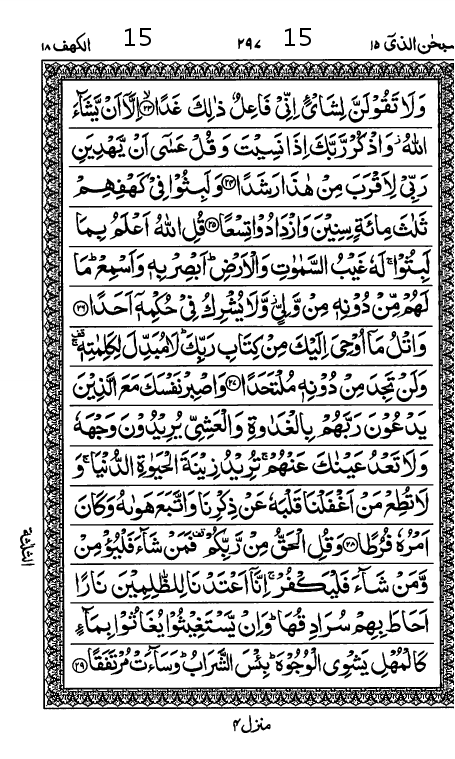 سبحٰن الذیٓ ۱۵ 15 ۲۹۷ 15 الكهف ۱۸
وَلَا تَقُوْلَنَّ لِشَایْءٍ اِنِّیْ فَاعِلٌ ذٰلِكَ غَدًا ﴿۲۳﴾ۙ اِلَّاۤ اَنْ یَّشَآءَ
اللّٰهُ ؗ وَاذْكُرْ رَّبَّكَ اِذَا نَسِیْتَ وَقُلْ عَسٰۤی اَنْ یَّهْدِیَنِ
رَبِّیْ لِاَقْرَبَ مِنْ هٰذَا رَشَدًا ﴿۲۴﴾ وَلَبِثُوْا فِیْ كَهْفِهِمْ
ثَلٰثَ مِائَةٍ سِنِیْنَ وَازْدَادُوْا تِسْعًا ﴿۲۵﴾ قُلِ اللّٰهُ اَعْلَمُ بِمَا
لَبِثُوْا ۚ لَهٗ غَیْبُ السَّمٰوٰتِ وَالْاَرْضِ ؕ اَبْصِرْ بِهٖ وَاَسْمِعْ ؕ مَا
لَهُمْ مِّنْ دُوْنِهٖ مِنْ وَّلِیٍّ ؗ وَّلَا یُشْرِكُ فِیْ حُكْمِهٖۤ اَحَدًا ﴿۲۶﴾
وَاتْلُ مَاۤ اُوْحِیَ اِلَیْكَ مِنْ كِتَابِ رَبِّكَ ؕ لَا مُبَدِّلَ لِكَلِمٰتِهٖ ۫ۚ
وَلَنْ تَجِدَ مِنْ دُوْنِهٖ مُلْتَحَدًا ﴿۲۷﴾ وَاصْبِرْ نَفْسَكَ مَعَ الَّذِیْنَ
یَدْعُوْنَ رَبَّهُمْ بِالْغَدٰوةِ وَالْعَشِیِّ یُرِیْدُوْنَ وَجْهَهٗ
وَلَا تَعْدُ عَیْنٰكَ عَنْهُمْ ۚ تُرِیْدُ زِیْنَةَ الْحَیٰوةِ الدُّنْیَا ۚ وَ
لَا تُطِعْ مَنْ اَغْفَلْنَا قَلْبَهٗ عَنْ ذِكْرِنَا وَاتَّبَعَ هَوٰىهُ وَكَانَ
اَمْرُهٗ فُرُطًا ﴿۲۸﴾ وَقُلِ الْحَقُّ مِنْ رَّبِّكُمْ ۫ فَمَنْ شَآءَ فَلْیُؤْمِنْ
وَّمَنْ شَآءَ فَلْیَكْفُرْ ۙ اِنَّاۤ اَعْتَدْنَا لِلظّٰلِمِیْنَ نَارًا ۙ
اَحَاطَ بِهِمْ سُرَادِقُهَا ؕ وَاِنْ یَّسْتَغِیْثُوْا یُغَاثُوْا بِمَآءٍ
كَالْمُهْلِ یَشْوِی الْوُجُوْهَ ؕ بِئْسَ الشَّرَابُ ؕ وَسَآءَتْ مُرْتَفَقًا ﴿۲۹﴾
الثلثة
منزل ۴